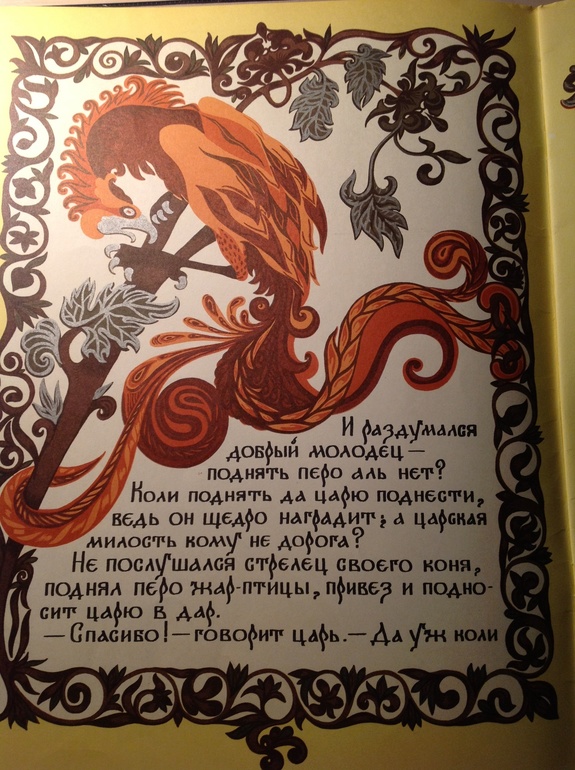 И раздумался
добрый молодец —
поднять перо аль нет?
Коли поднять да царю поднести,
ведь он щедро наградит; а царская
милость кому не дорога?
Не послушался стрелец своего коня,
поднял перо жар-птицы, привез и подно-
сит царю в дар.
— Спасибо! — говорит царь. — Да уж коли